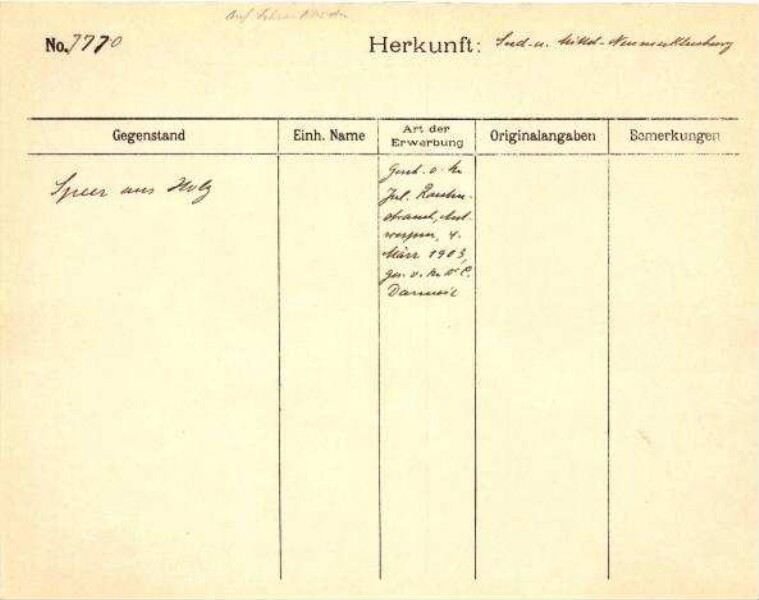 Auf
No. 7770 Herkunft: Süd- u. Mittel-Neumecklenburg
Gegenstand Einh. Name Art der Erwerbung Originalangaben Bemerkungen
Speer aus Holz
Gesch. v. Hr.
Jul.
Ant-
werpen, 4.
März 1903,
ges. v. Hr. Dr. C.